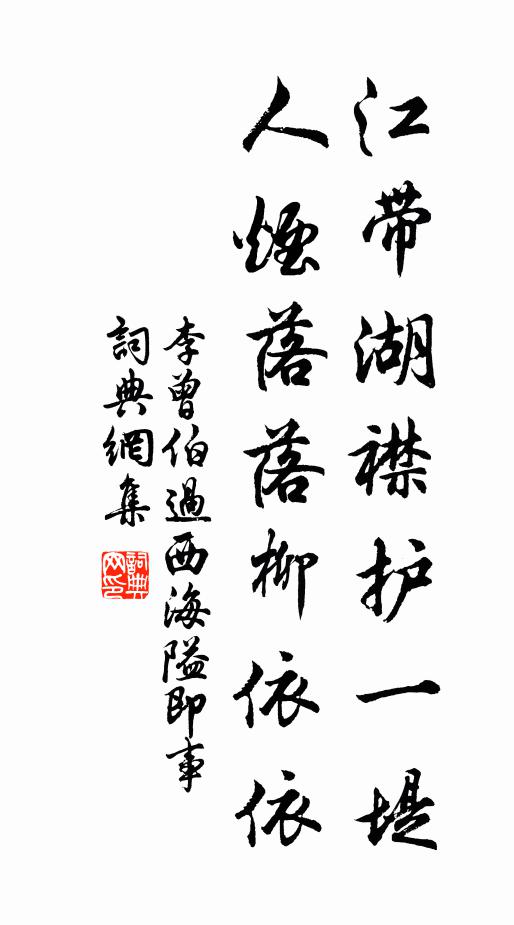 江带湖襟护一堤
人煙落落柳依依
李曾伯過西海隘即事
詞典網集
詞典網印